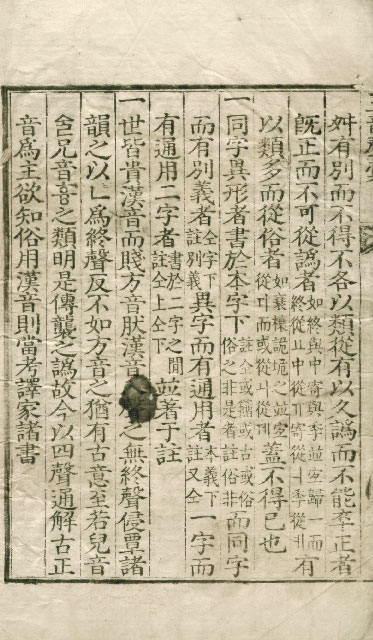 舛有別而不得不各以類從有以久譌而不能卒正者
旣正而不可從譌者如終與中寄與季並宜歸一而終從ㅛ中從ㅠ寄從ㅢ季從ㅖ有
以類多而從俗者如襄穰詭垝之並宜從而或從ㅑ從蓋不得已也
一同字異形者書於本字下註仝或或古或俗俗之非是者註俗非而同字
而有別義者仝字下註別義異字而有通用者本義下註又仝一字而
有通用二字者書於二字之間註仝上仝下並著于註
一世皆貴漢音而賤方音肰漢音聲之無終聲侵覃諸
韻之以ㄴ爲終聲反不如方音之猶有古意至若兒音
兄音之類明是傳襲之譌故今以四聲通解古正
音爲主欲知俗用漢音則當考譯家諸書